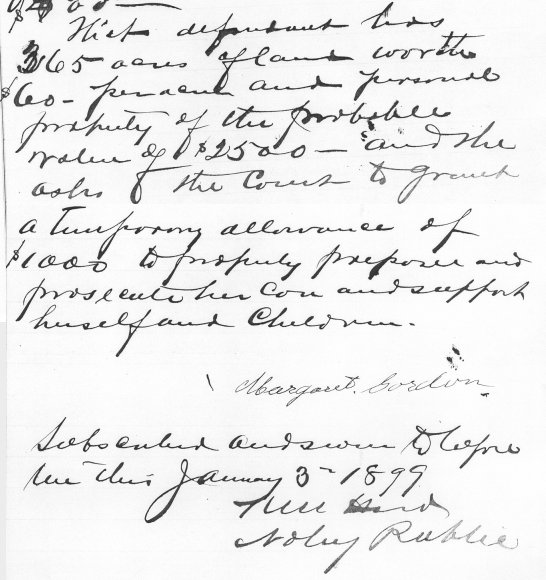 That defendant has
365 acres of land worth
$60- per acre and personal
property of the probable
value of $2500- and she
asks of the Court to grant
a temporary allowance of
$1000 to properly prepare and
prosecute her case and support
herself and Children.
Margaret Gordon
Subscribed and sworn to before
me this January 3- 1899
Notary Public